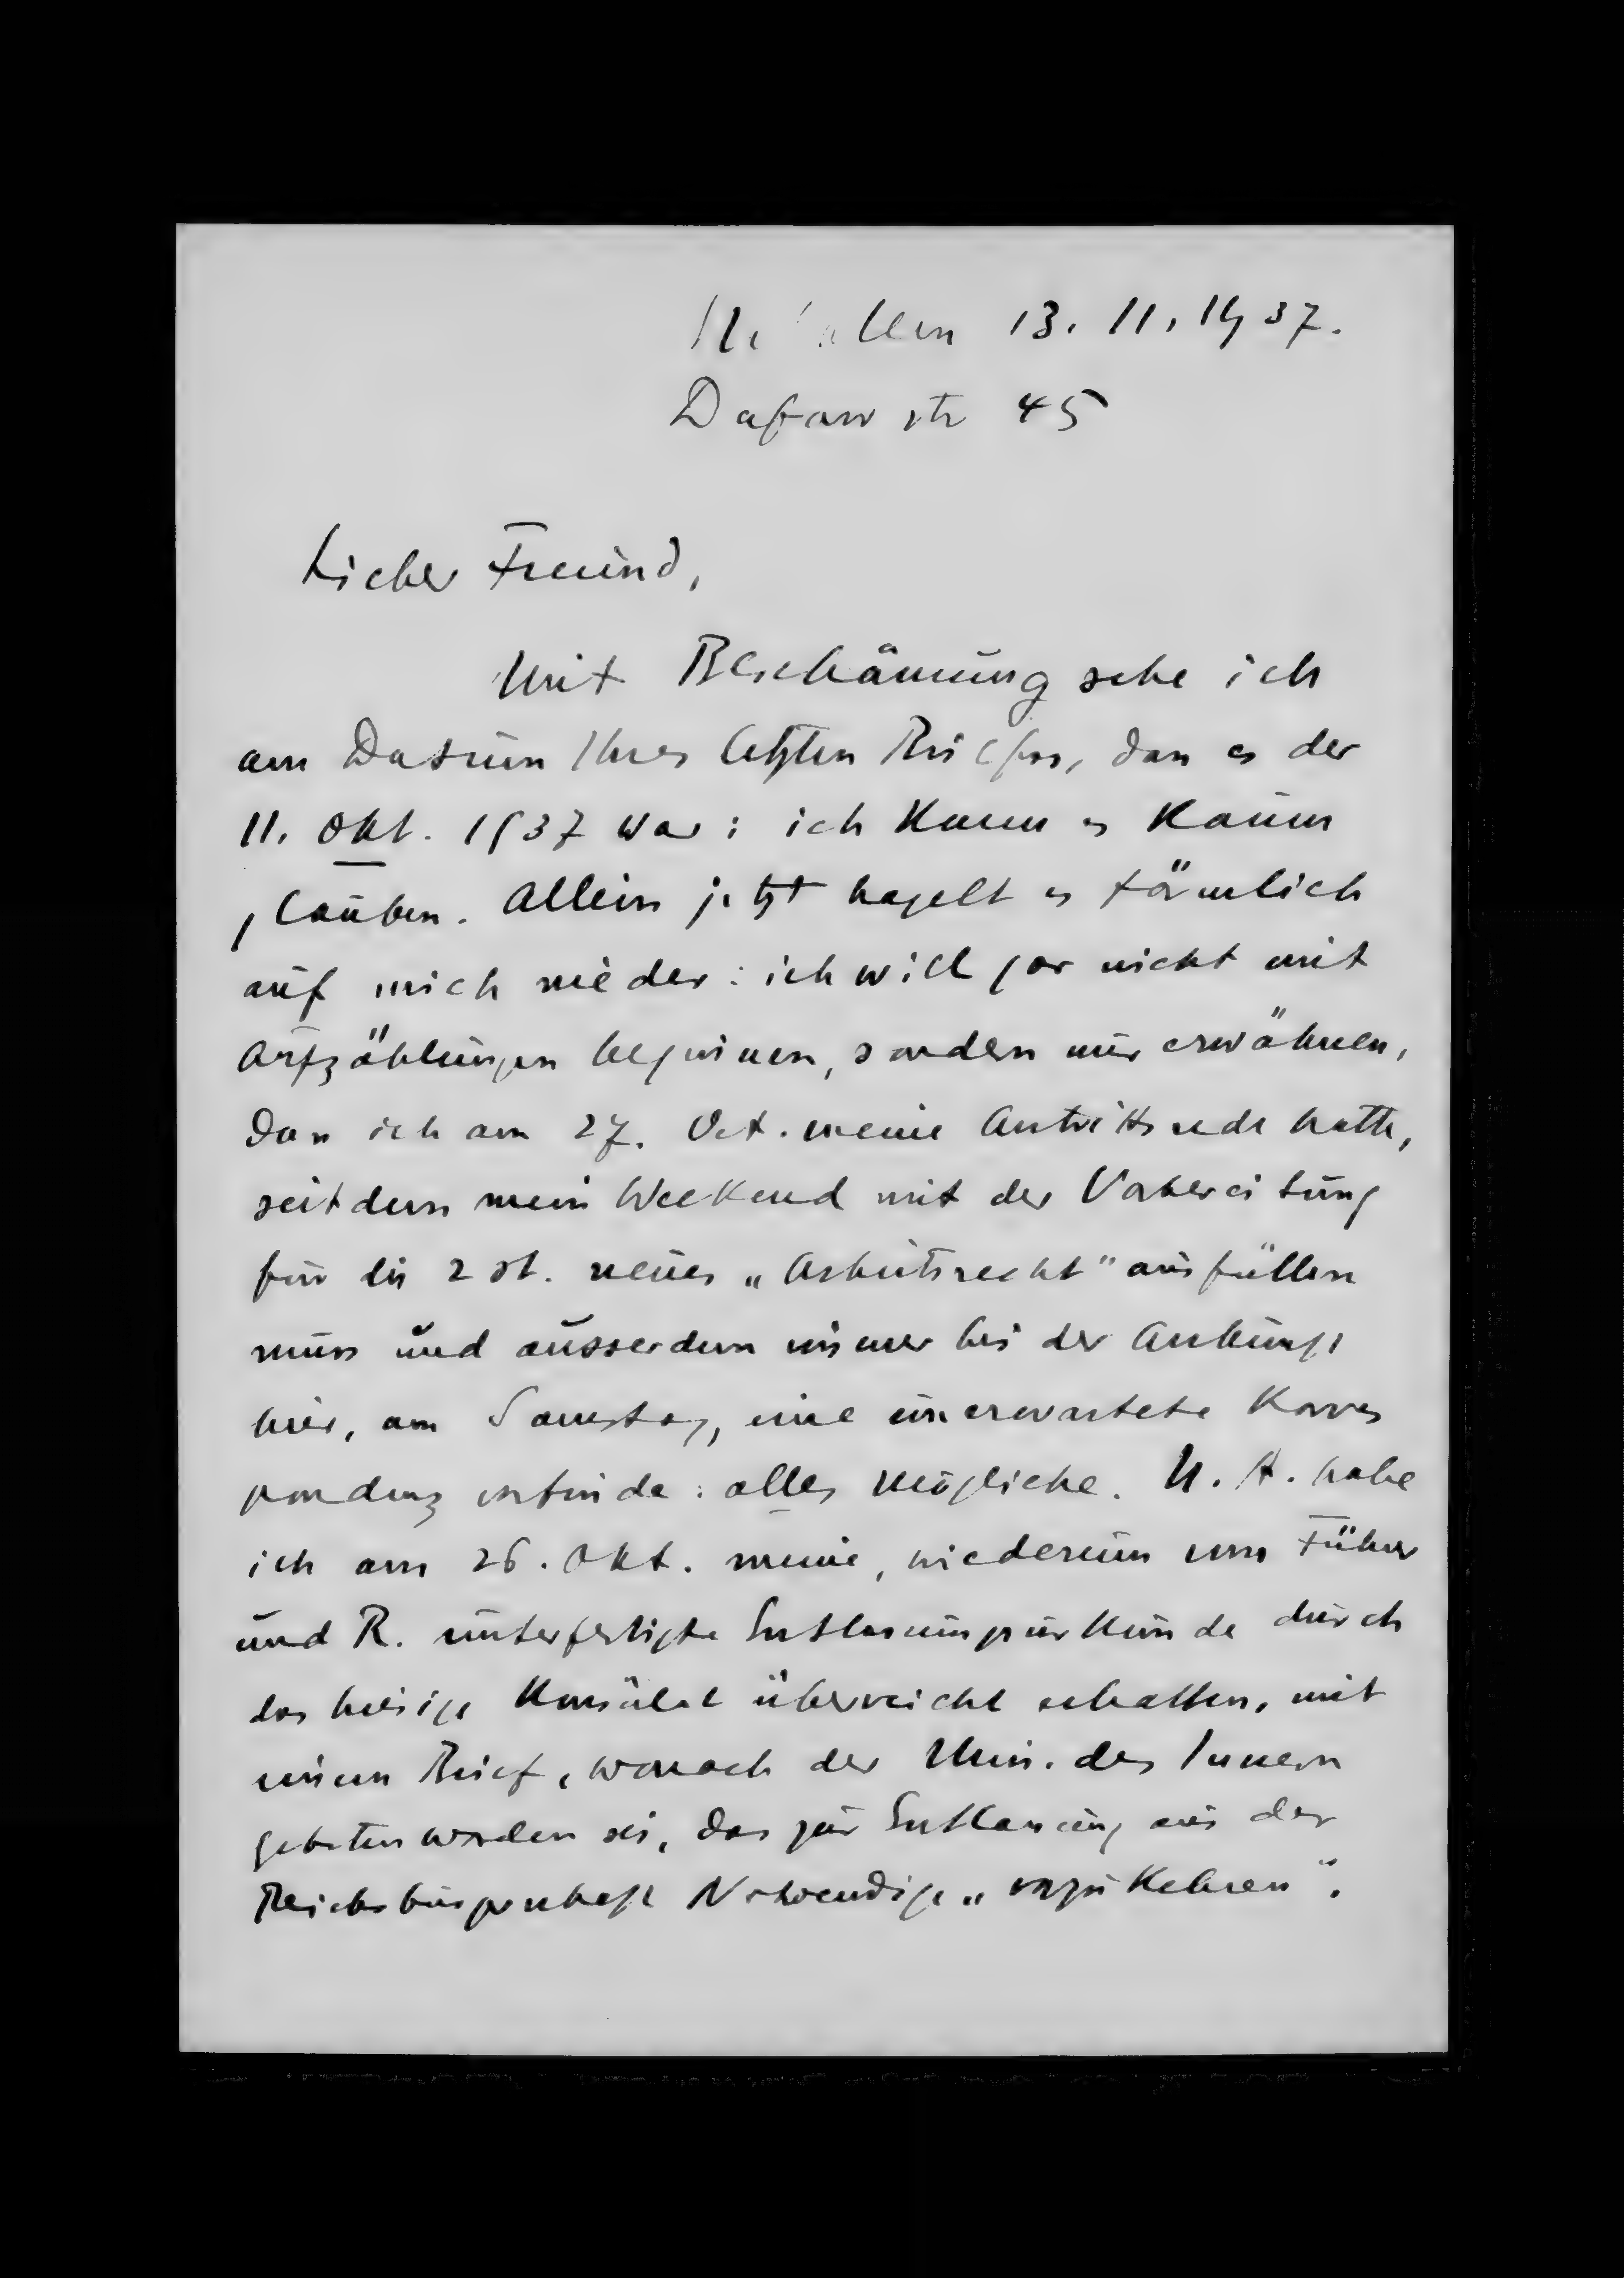 St. Gallen 13. 11. 1937.
Dufourstr 45
Lieber Freund,
Mit Beschämung sehe ich
am Datum Ihres letzten Briefes, dass es der
11. Okt. 1937 war: ich kann es kaum
glauben. Allein jetzt hagelt es förmlich
auf mich nieder: ich will gar nicht mit
Aufzählungen beginnen, sondern nur erwähnen,
dass ich am 27. Oct. meine Antrittsrede hatte,
seitdem mein Weekend mit der Vorbereitung
für die 2 st. neues „Arbeitsrecht" ausfüllen
muss und ausserdem immer bei der Ankunft
hier, am Samstag, eine unerwartete Korres
pondenz vorfinde: alles Mögliche. U. A. habe
ich am 26. Okt. meine, wiederum vom Führer
und R. unterfertigte Entlassungsurkunde durch
das hiesige Konsulat überreicht erhalten, mit
einem Brief, wonach der Min. des Innern
gebeten worden sei, das zur Entlassung aus der
Reichsbürgerschaft Notwendige „vorzukehren".